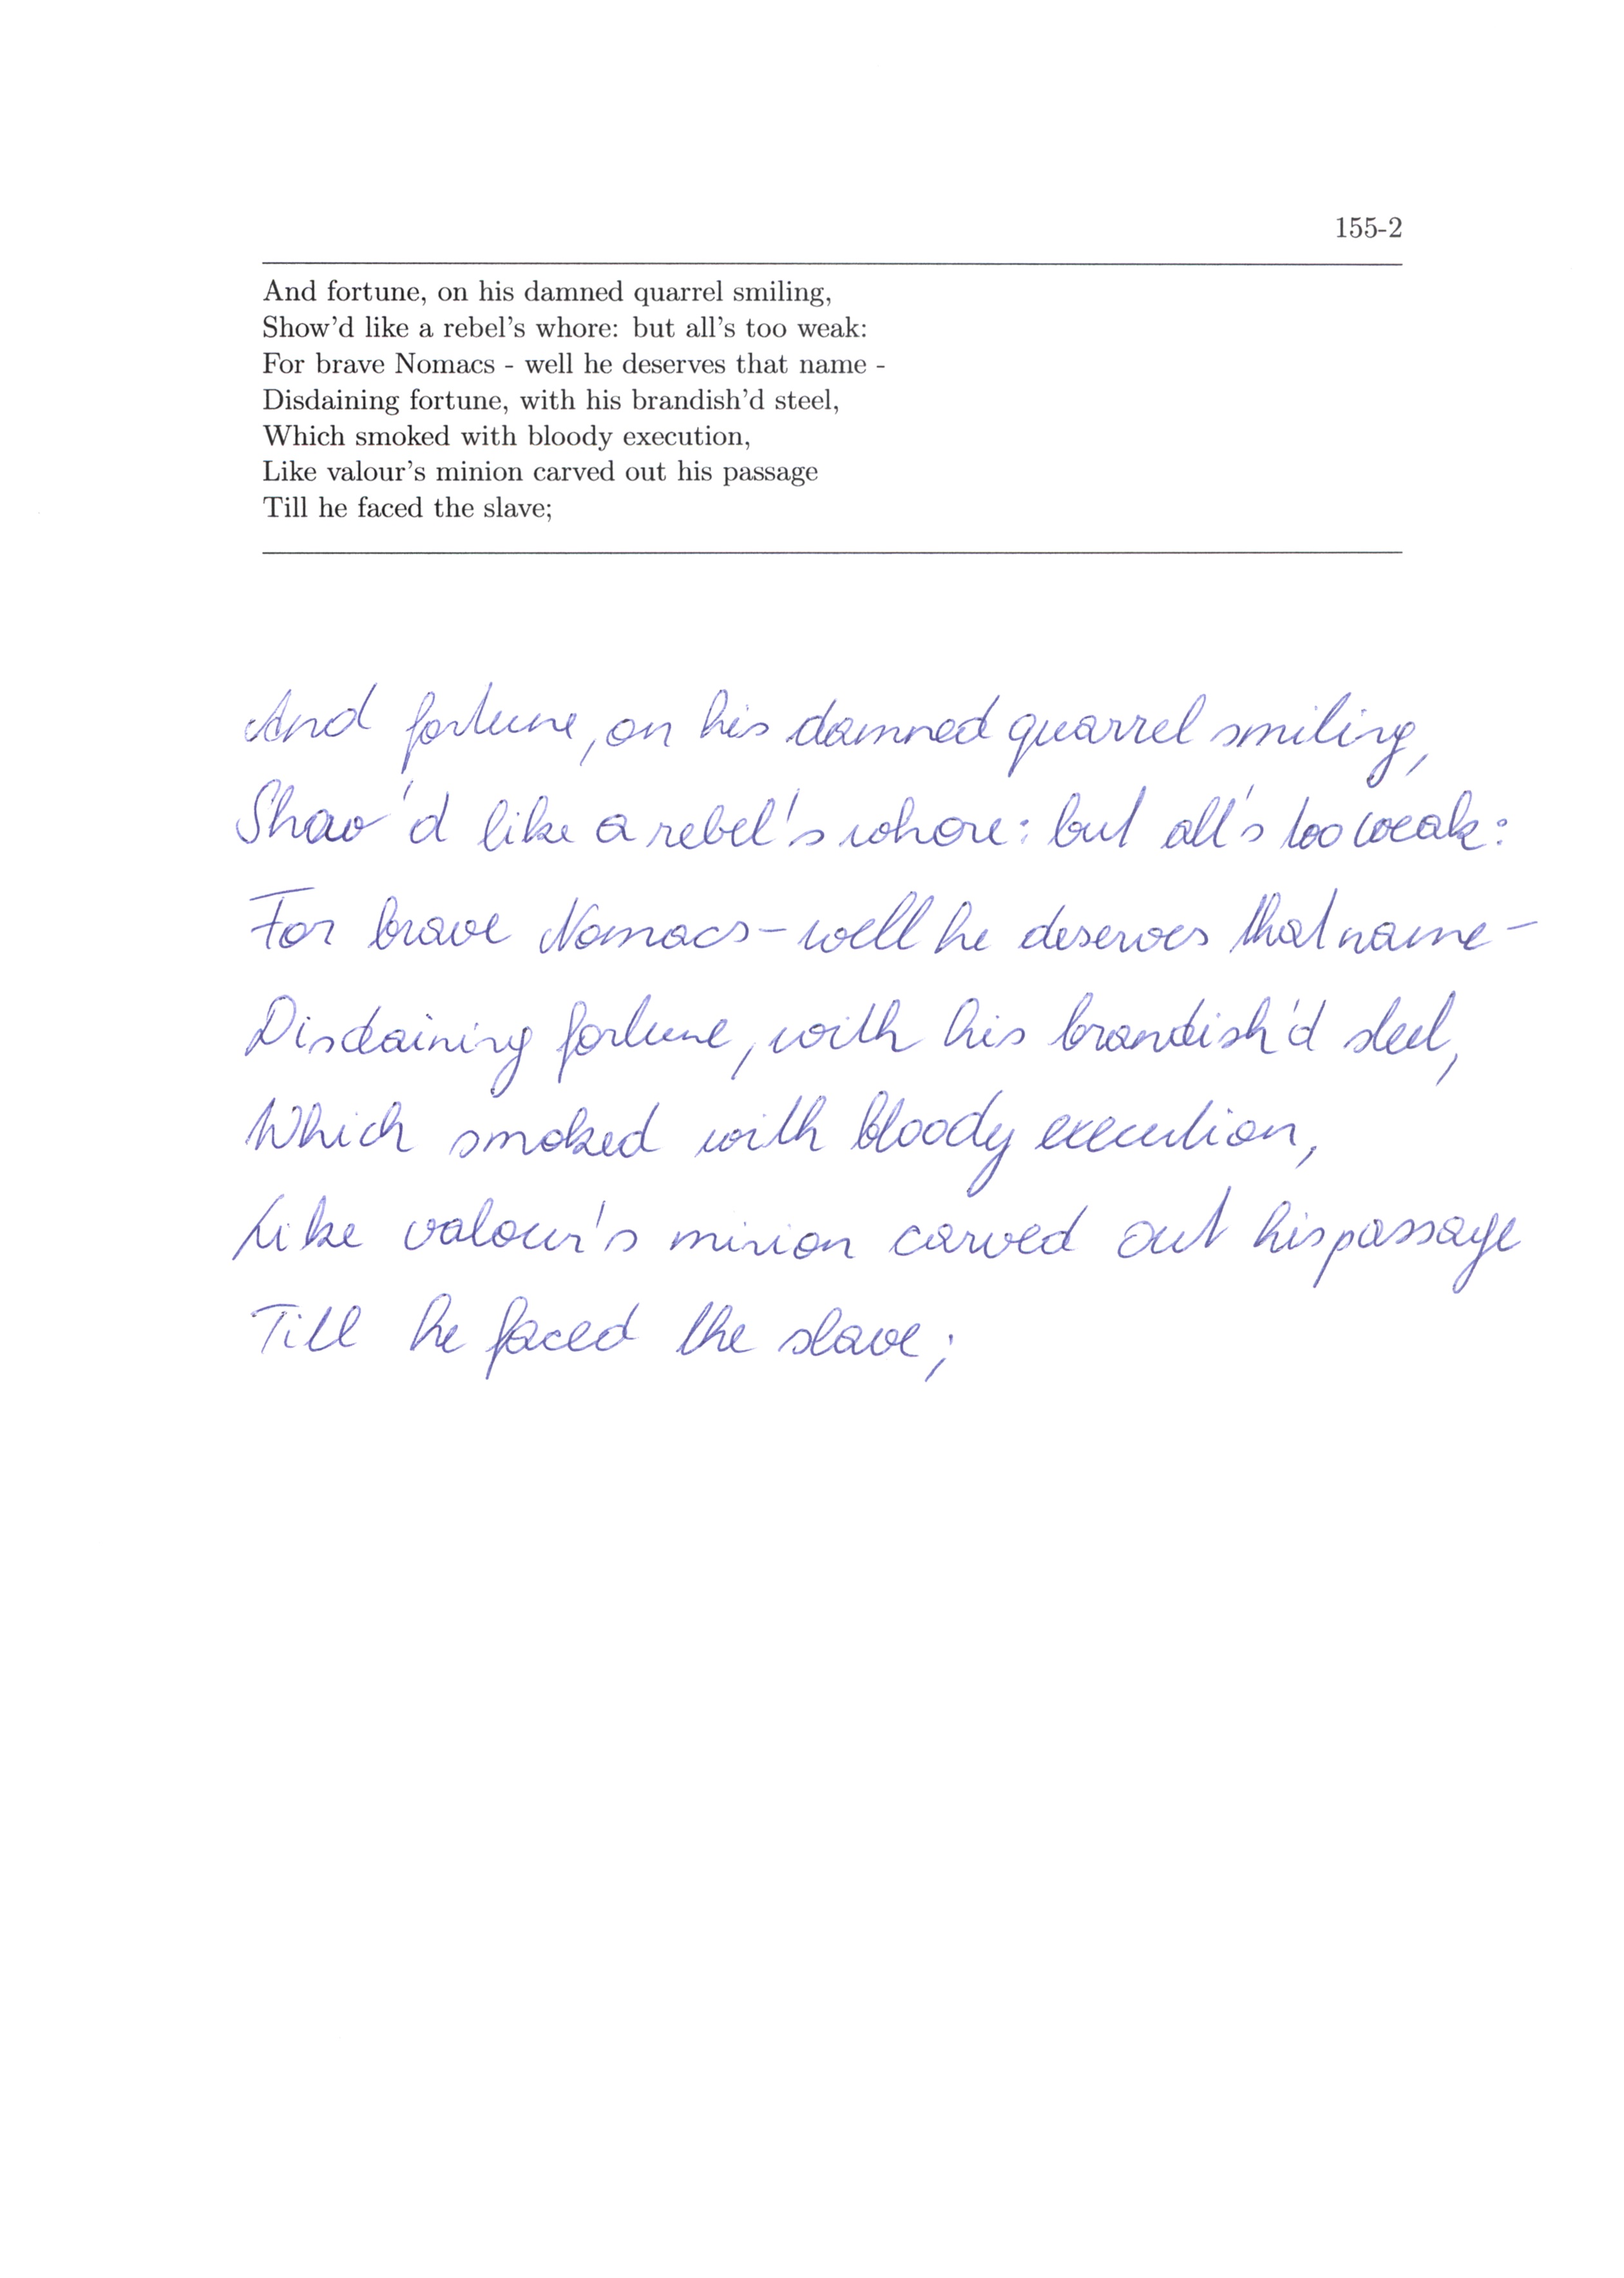 155-2
And fortune, on his damned quarrel smiling,
Show'd like a rebel's whore: but all's too weak:
For brave Nomacs - well he deserves that name -
Disdaining fortune, with his brandish'd steel,
Which smoked with bloody execution,
Like valour's minion carved out his passage
Till he faced the slave;
And fortune, on his damned quarrel smiling,
Show'd like a rebel's whore: but all's too weak:
For brave Nomacs - well he deserves that name -
Disdaining fortune, with his brandish'd steel,
Which smoked with bloody execution,
Like valour's minion carved out his passage
Till he faced the slave;